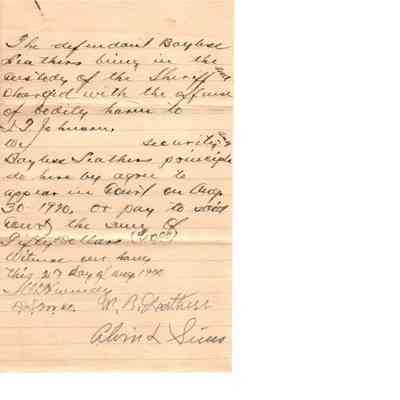 The defendant Bayless
Leathers being in the
custody of the Sheriff and
charged with the offense
of bodily harm to
Johnson,
We security and
Bayless Leathers principle
do here by agree to
appear in Court on Aug
30 1920, or pay to said
Court the sum of
Fifty Dollars
Witness our hand
This day of Aug 1920
W. B. Leathers
Alvin L Sims